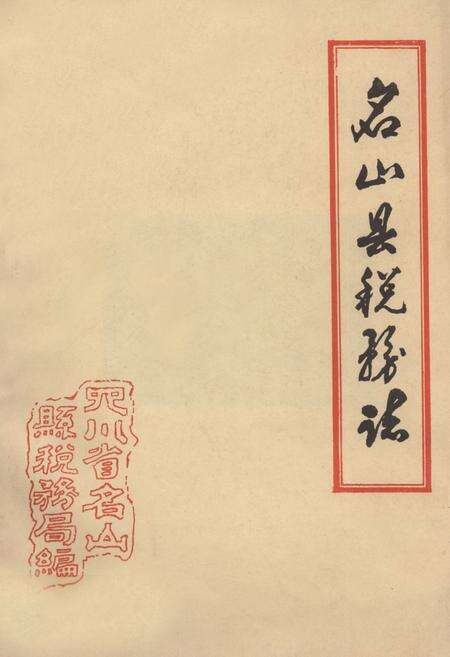 名山县税务誌
四川省名山
縣税務局編